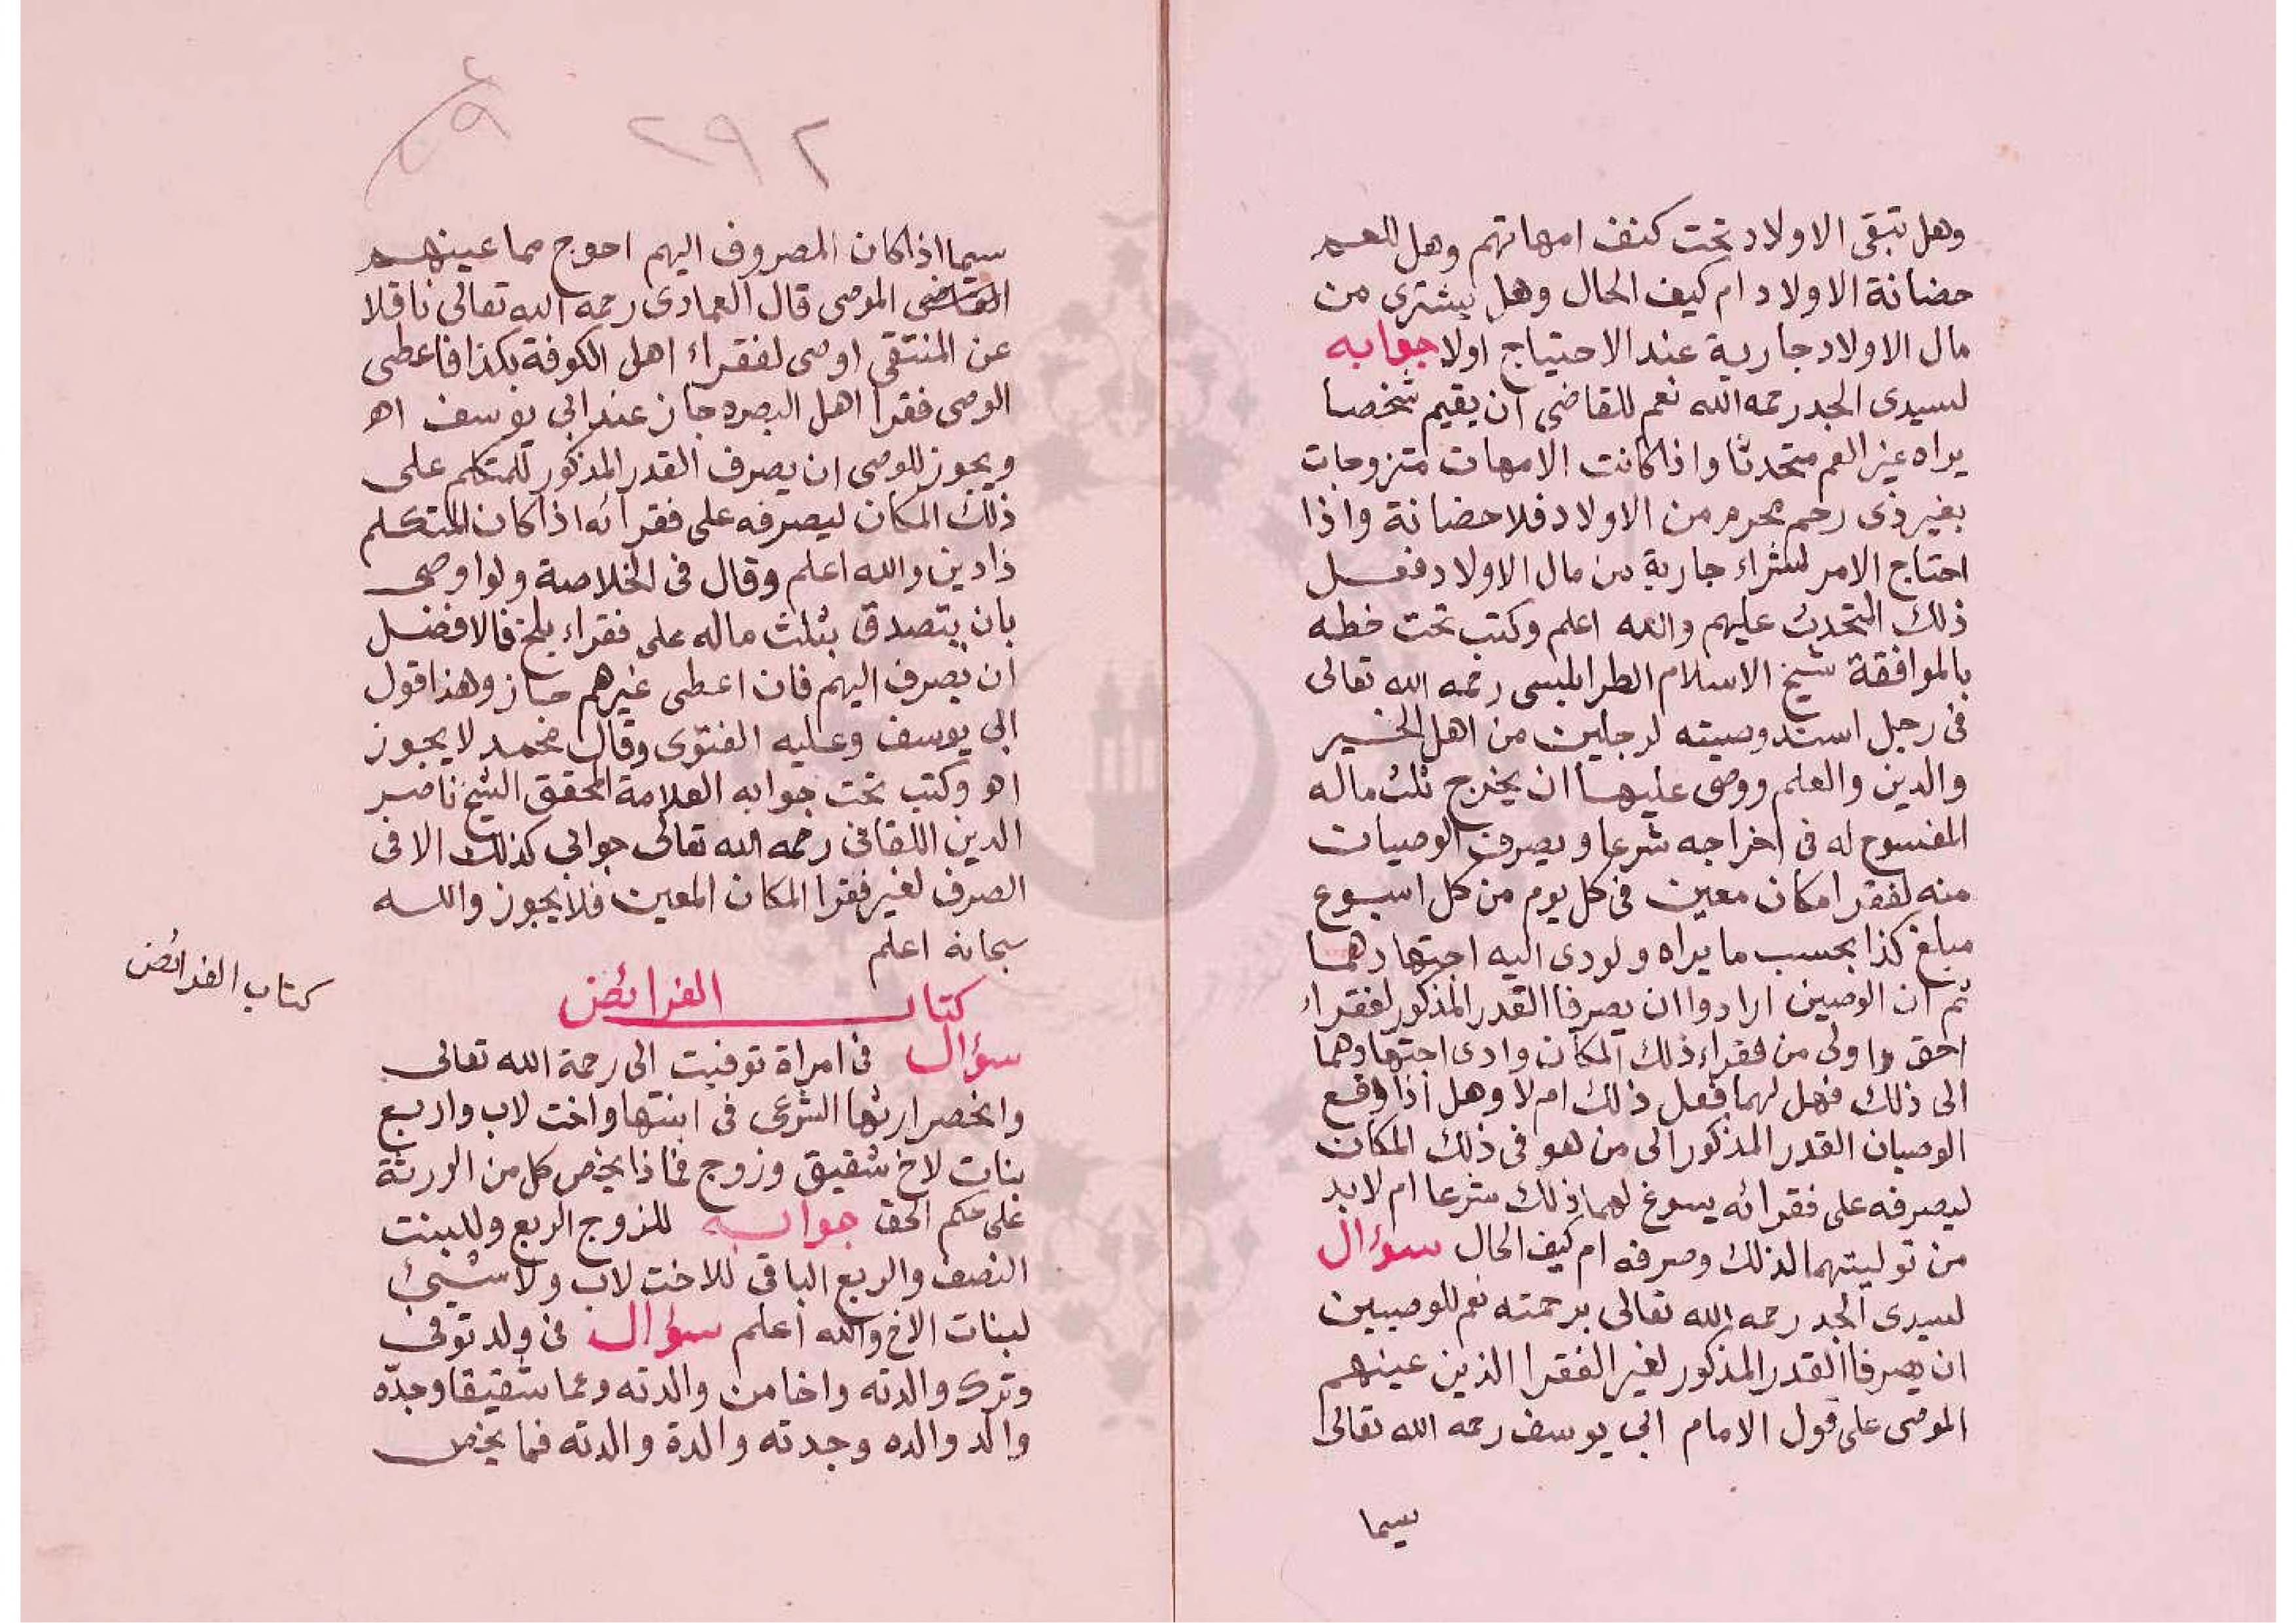 وهل تبقى الاولاد تحت كنف امهاتهم وهل للعم
حضانة الاولاد ام كيف الحال وهل يشترى من
مال الاولاد جارية عند الاحتياج اولا جوابه
لسيدى الجد رحمه الله نعم للقاضى ان يقيم شخصا
يراه غير العم متحدثا واذا كانت الامهات متزوجات
بغير ذى رحم محرم من الاولاد فلا حضانة واذا
احتاج الامر لشراء جارية من مال الاولاد فعل
ذلك المتحدث عليهم والله اعلم وكتب تحت خطه
بالموافقة شيخ الاسلام الطرابلسى رحمه الله تعالى
فى رجل اسند وصيته لرجلين من اهل الخير
والدين والعلم ووصى عليهما ان يخرج ثلث ماله
المفسوح له فى اخراجه شرعا ويصرف الوصيات
منه لفقرا مكان معين فى كل يوم من كل اسبوع
مبلغ كذا بحسب ما يراه ولودى اليه اجتهادهما
ثم ان الوصين ارادوا ان يصرفا القدر المذكور لفقراء
احق واولى من فقراء ذلك المكان وادى اجتهادهما
الى ذلك فهل لهما فعل ذلك ام لا وهل اذا وقع
الوصيان القدر المذكور الى من هو فى ذلك المكان
ليصرفه على فقرائه يسوغ لهما ذلك شرعا ام لا بد
من توليتهما لذلك وصرفه ام كيف الحال سؤال
لسيدى الجد رحمه الله تعالى برحمته نعم للوصيين
ان يصرفا القدر المذكور لغير الفقرا الذين عينهم
الموصى على قول الامام ابى يوسف رحمه الله تعالى
سيما
٢٩٢
سيما اذا كان المصروف اليهم احوج مما عينهم
الموصى قال العمادى رحمه الله تعالى ناقلا
عن المنتقى اوصى لفقراء اهل الكوفة بكذا فاعطى
الوصى فقرا اهل البصره جاز عند ابى يوسف اهـ
ويجوز للوصى ان يصرف القدر المذكور للمتكلم على
ذلك المكان ليصرفه على فقرائه اذا كان المتكلم
ذا دين والله اعلم وقال فى الخلاصة ولو اوصى
بان يتصدق بثلث ماله على فقراء بلخ فالافضل
ان يصرف اليهم فان اعطى غيرهم جاز وهذا قول
ابى يوسف وعليه الفتوى وقال محمد لا يجوز
اهـ وكتب تحت جوابه العلامة المحقق الشيخ ناصر
الدين اللقانى رحمه الله تعالى جوابى كذلك الا فى
الصرف لغير فقرا المكان المعين فلا يجوز والله
سبحانه اعلم
كتاب الفرائض
كتاب الفرائض
سؤال فى امراة توفيت الى رحمة الله تعالى
وانحصر ارثها الشرعى فى ابنتها واخت لاب واربع
بنات لاخ شقيق وزوج فماذا يخص كل من الورثة
على حكم الحق جوابه للزوج الربع وللبنت
النصف والربع الباقى للاخت لاب ولا شيئ
لبنات الاخ والله اعلم سؤال فى ولد توفى
وترك والدته واخا من والدته وعما شقيقا وجدّه
والد والده وجدته والدة والدته فما يخص